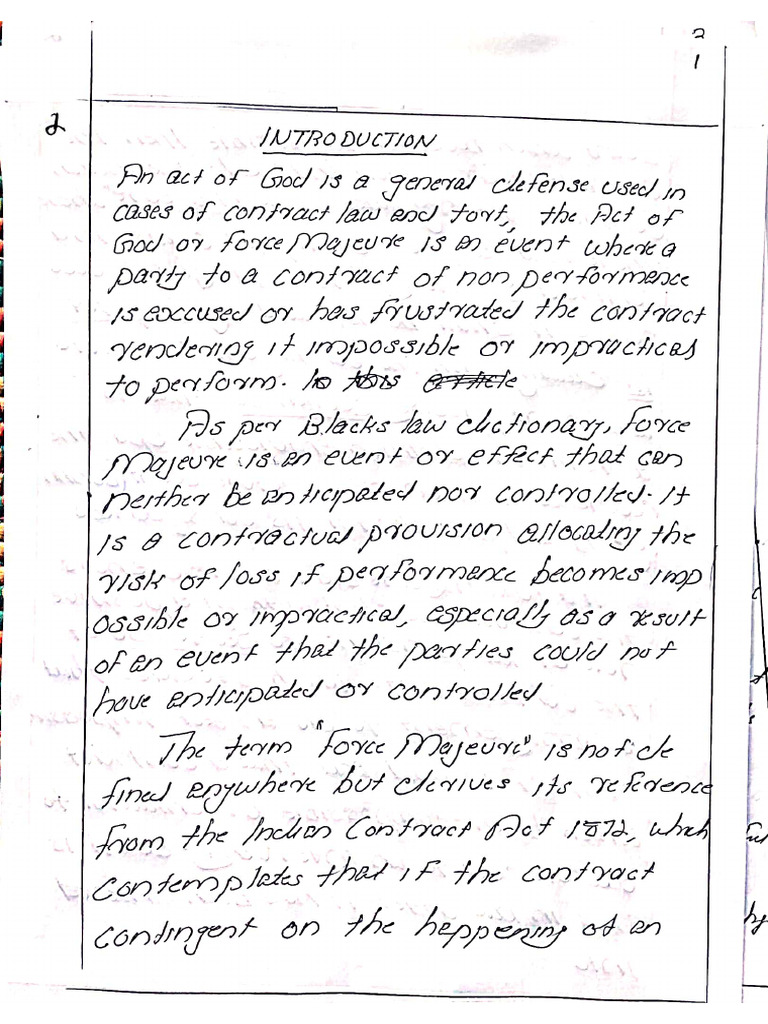 2
1
2
INTRODUCTION
An act of God is a general defense used in
cases of contract law and tort, the Act of
God or force Majeure is an event where a
party to a contract of non performance
is exccused or has frustrated the contract
rendering it impossible or impractical
to perform. In this article
As per Blacks law dictionary, Force
Majeure is an event or effect that can
neither be anticipated nor controlled. it
is a contractual provision allocating the
risk of loss if performance becomes imp
ossible or impractical, especially as a result
of an event that the parties could not
have anticipated or controlled
The term "Force Majeure" is not de
fined anywhere but derives its reference
from the Indian Contract Act 1872, which
Contemplates that if the contract
contingent on the happening of an